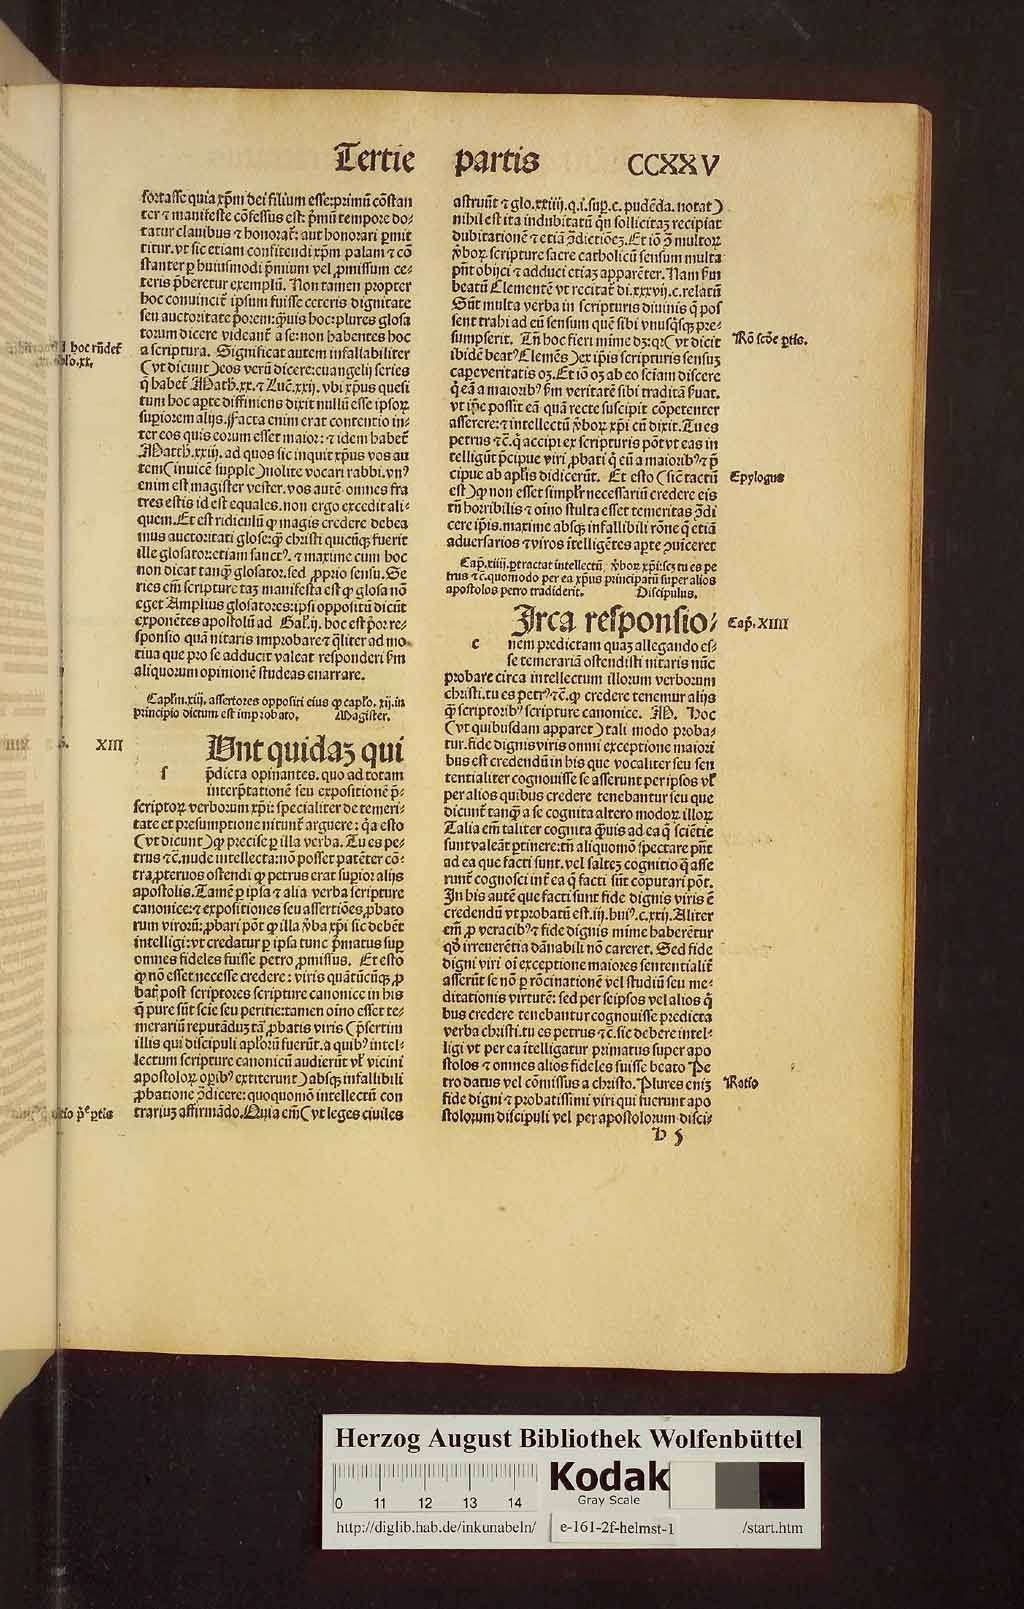 Tertie partis CCXXV
fortasse quia xp̄m dei filium esse: primū cōstan
ter ⁊ manifeste cōfessus est: p̄mū tempore do⸗
tatur clauibus ⁊ honorat᷑: aut honorari ꝑmit
titur. vt sic etiam confitendi xp̄m palam ⁊ cō
stanter ꝑ huiusmodi p̄mium vel ꝓmissum ce⸗
teris p̄beretur exemplū. Non tamen propter
hoc conuincit᷑ ipsum fuisse ceteris dignitate
seu auctoritate p̄orem: q̄uis hoc: plures glosa
torum dicere videant᷑ a se: non habentes hoc
a scriptura. Significat autem infallibiliter
(vt dicunt) eos verū dicere: euangelij series
q̄ habet᷑ Math. xx. ⁊ Luc̄. xxij. vbi xp̄us quesi
tum hoc aꝑte diffiniens dixit nullū esse ipsoꝝ
suꝑiorem alijs. Facta enim erat contentio in⸗
ter eos quis eorum esset maior: ⁊ idem habet᷑
Matth. xxiij. ad quos sic inquit xp̄us vos au
tem (inuicē supple) nolite vocari rabbi. vnꝰ
enim est magister vester. vos autē omnes fra
tres estis id est equales. non ergo excedit ali⸗
quem. Et est ridiculū ꝙ magis credere debea
mus auctoritati glose: q̄ christi quicūq̨ fuerit
ille glosator: etiam sanctꝰ. ⁊ maxime cum hoc
non dicat tanq̄ glosator. sed ꝓprio sensu. Se
ries em̄ scripture taꝫ manifesta est ꝙ glosa nō
eget Amplius glosatores: ipsi oppositū dicūt
exponētes apostolū ad Gal̄. ij. hoc est p̄or re⸗
sponsio quā nitaris improbare ⁊ q̄liter ad mo
tiua que pro se adducit valeat responderi ẜm
aliquorum opinionē studeas enarrare.
Capl̄m. xiij. assertores oppositi eius ꝙ capl̄o. xij. in
principio dictum est improbato. Magister.
XIII
Vnt quidaꝫ qui
s p̄dicta opinantes. quo ad totam
interp̄tationē seu expositionē p̄⸗
scriptoꝝ verborum xp̄i: specialiter de temeri⸗
tate et presumptione nitunt᷑ arguere: q̄a esto
(vt dicunt) ꝙ precise ꝑ illa verba. Tu es pe⸗
trus ⁊c̄. nude intellecta: nō posset patēter cō⸗
tra ꝓteruos ostendi ꝙ petrus erat suꝑior alijs
apostolis. Tamē ꝑ ipsa ⁊ alia verba scripture
canonice: ⁊ expositiones seu assertiōes ꝓbato
rum viroꝝ: ꝓbari pōt ꝙ illa v̄ba xp̄i sic debēt
intelligi: vt credatur ꝑ ipsa tunc p̄matus suꝑ
omnes fideles fuisse petro ꝓmissus. Et esto
ꝙ nō esset necesse credere: viris quātūcūq̨ ꝓ
bat᷑ post scriptores scripture canonice in his
q̄ pure sūt scīe seu peritie: tamen oīno esset te⸗
merariū reputāduꝫ tā ꝓbatis viris (p̄sertim
illis qui discipuli apl̄orū fuerūt. a quibꝰ intel⸗
lectum scripture canonicū audierūt vl̄ vicini
apostoloꝝ oꝑibꝰ extiterunt) absq̨ infallibili
ꝓbatione ꝯdicere: quoquomō intellectū con
trariuꝫ affirmādo. Quia em̄ (vt leges ciuiles
astruūt ⁊ glo. xxiiij. q. i. suꝑ. c. pudēda. notat)
nihil est ita indubitatū q̄n sollicitaꝫ recipiat
dubitationē ⁊ etiā ꝯdictiōeꝫ. Et iō ꝯ multoꝝ
v̄boꝝ scripture sacre catholicū sensum multa
pn̄t obijci ⁊ adduci etiaꝫ apparēter. Nam ẜm
beatū Clementē vt recitat᷑ di. xxxvij. c. relatū
Sūt multa verba in scripturis diuinis q̄ pos
sent trahi ad eū sensum quē sibi vnusq̄sq̨ pre⸗
sumpserit. Tn̄ hoc fieri mīme dꝫ: qꝛ (vt dicit
ibidē beatꝰ Clemēs) ex ip̄is scripturis sensuꝫ
cape veritatis oꝫ. Et iō oꝫ ab eo sciam discere
q̄ eā a maioribꝰ ẜm veritatē sibi traditā ẜuat.
vt ip̄e possit eā quā recte suscipit cōpetenter
asserere: ⁊ intellectū v̄boꝝ xp̄i cū dixit. Tu es
petrus ⁊c̄. q̄ accipi ex scripturis pōt vt eas in
telligūt p̄cipue viri ꝓbati q̄ eū a maioribꝰ ⁊ p̄
cipue ab apl̄is didicerūt. Et esto (sic̄ tactū
est) ꝙ non esset simpl̄r necessariū credere eis
tn̄ horribilis ⁊ oīno stulta esset temeritas ꝯdi
cere ip̄is. maxime absq̨ infallibili rōne q̄ etiā
aduersarios ⁊ viros ītelligētes aꝑte ꝯuinceret
Cap̄. xiiij. ꝑtractat intellectū v̄boꝝ xp̄i: scꝫ tu es pe
trus ⁊ c̄. quomodo per ea xp̄us principatū super alios
apostolos petro tradiderit. Discipulus.
Irca responsio⸗
c nem predictam quaꝫ allegando es⸗
se temerariā ostendisti nitaris nūc
probare circa intellectum illorum verborum
christi. tu es petrꝰ ⁊c̄. ꝙ credere tenemur alijs
q̄ scriptoribꝰ scripture canonice. M. Hoc
(vt quibusdam apparet) tali modo proba⸗
tur. fide dignis viris omni exceptione maiori
bus est credendū in his que vocaliter seu sen
tentialiter cognouisse se asserunt per ipsos vl̄
per alios quibus credere tenebantur seu que
dicunt᷑ tanq̄ a se cognita altero modoꝝ illoꝝ
Talia em̄ taliter cognita q̄uis ad ea q̄ sciētie
sunt valeāt ꝑtinere: tn̄ aliquomō spectare pn̄t
ad ea que facti sunt. vel salteꝫ cognitio q̄ asse
runt᷑ cognosci int᷑ ea q̄ facti sūt cōputari pōt.
In his autē que facti sunt fide dignis viris ē
credendū vt probatū est. iij. huiꝰ. c. xxij. Aliter
em̄ ꝓ veracibꝰ ⁊ fide dignis mīme haberētur
qd̓ irreuerētia dānabili nō careret. Sed fide
digni viri oī exceptione maiores sententialit᷑
asserūt se nō ꝑ rōcinationē vel studiū seu me⸗
ditationis virtutē: sed per seipsos vel alios q̄
bus credere tenebantur cognouisse predicta
verba christi. tu es petrus ⁊c̄. sic debere intel⸗
ligi vt per ea ītelligatur primatus super apo
stolos ⁊ omnes alios fideles fuisse beato Pe
tro datus vel cōmissus a christo. Plures eniꝫ
fide digni ⁊ probatissimi viri qui fuerunt apo
stolorum discipuli vel per apostolorum disci⸗
h 5
Rō scd̄e ꝑtis.
Epylogus
Cap̄. XIIII
Ratio
Herzog August Bibliothek Wolfenbüttel
0 11 12 13 14
Kodak
Gray Scale
http://diglib.hab.de/inkunabeln/ e-161-2f-helmst-1 /start.htm